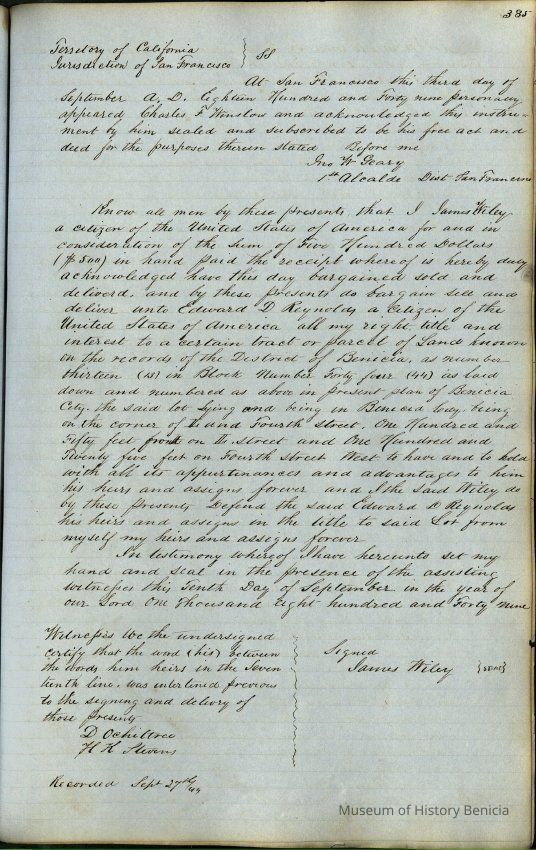 385
Territory of California
Jurisdiction of San Francisco } SS
At San Francisco this third day of
September A. D. Eighteen Hundred and Forty nine personally
appeared Charles F Winslow and acknowledged this instru-
ment by him sealed and subscribed to be his free act and
deed for the purposes therein stated Before me
Jno W Geary
1st Alcalde Dist San Francisco
Know all men by these presents, that I James Wiley
a citizen of the United States of America for and in
consideration of the Sum of Five Hundred Dollars
($500) in hand paid the receipt whereof is hereby duly
acknowledged have this day bargained sold and
deliverd, and by these presents do bargain sell and
deliver unto Edward D Reynolds a Citizen of the
United States of America all my right, title and
interest to a certain tract or parcel of Land known
on the records of the District of Benicia, as number
thirteen (13) in Block Number Forty four (44) as laid
down and numbered as above in present plan of Benicia
City, the said lot lying and being in Benicia City, being
on the corner of and Fourth Street, One Hundred and
Fifty feet front on street and One Hundred and
Twenty five feet on Fourth Street West to have and to hold
with all its appurtinances and advantages to him
his heirs and assigns forever and I the said Wiley do
by these presents Defend the said Edward D Reynolds
his heirs and assigns in the title to said Lot from
myself my heirs and assigns forever
In testimony whereof I have hereunto set my
hand and seal in the presence of the assisting
witnesses this Tenth Day of September in the year of
our Lord One thousand Eight hundred and Forty nine
Witnesses We the undersigned
certify that the word (his) between
the words him heirs in the Seven
teenth line, was interlined previous
to the signing and delivery of
those presents
D Ochiltree
H K Stevens
Signed
James Wiley {SEAL}
Recorded Sept 27th/49
Museum of History Benicia